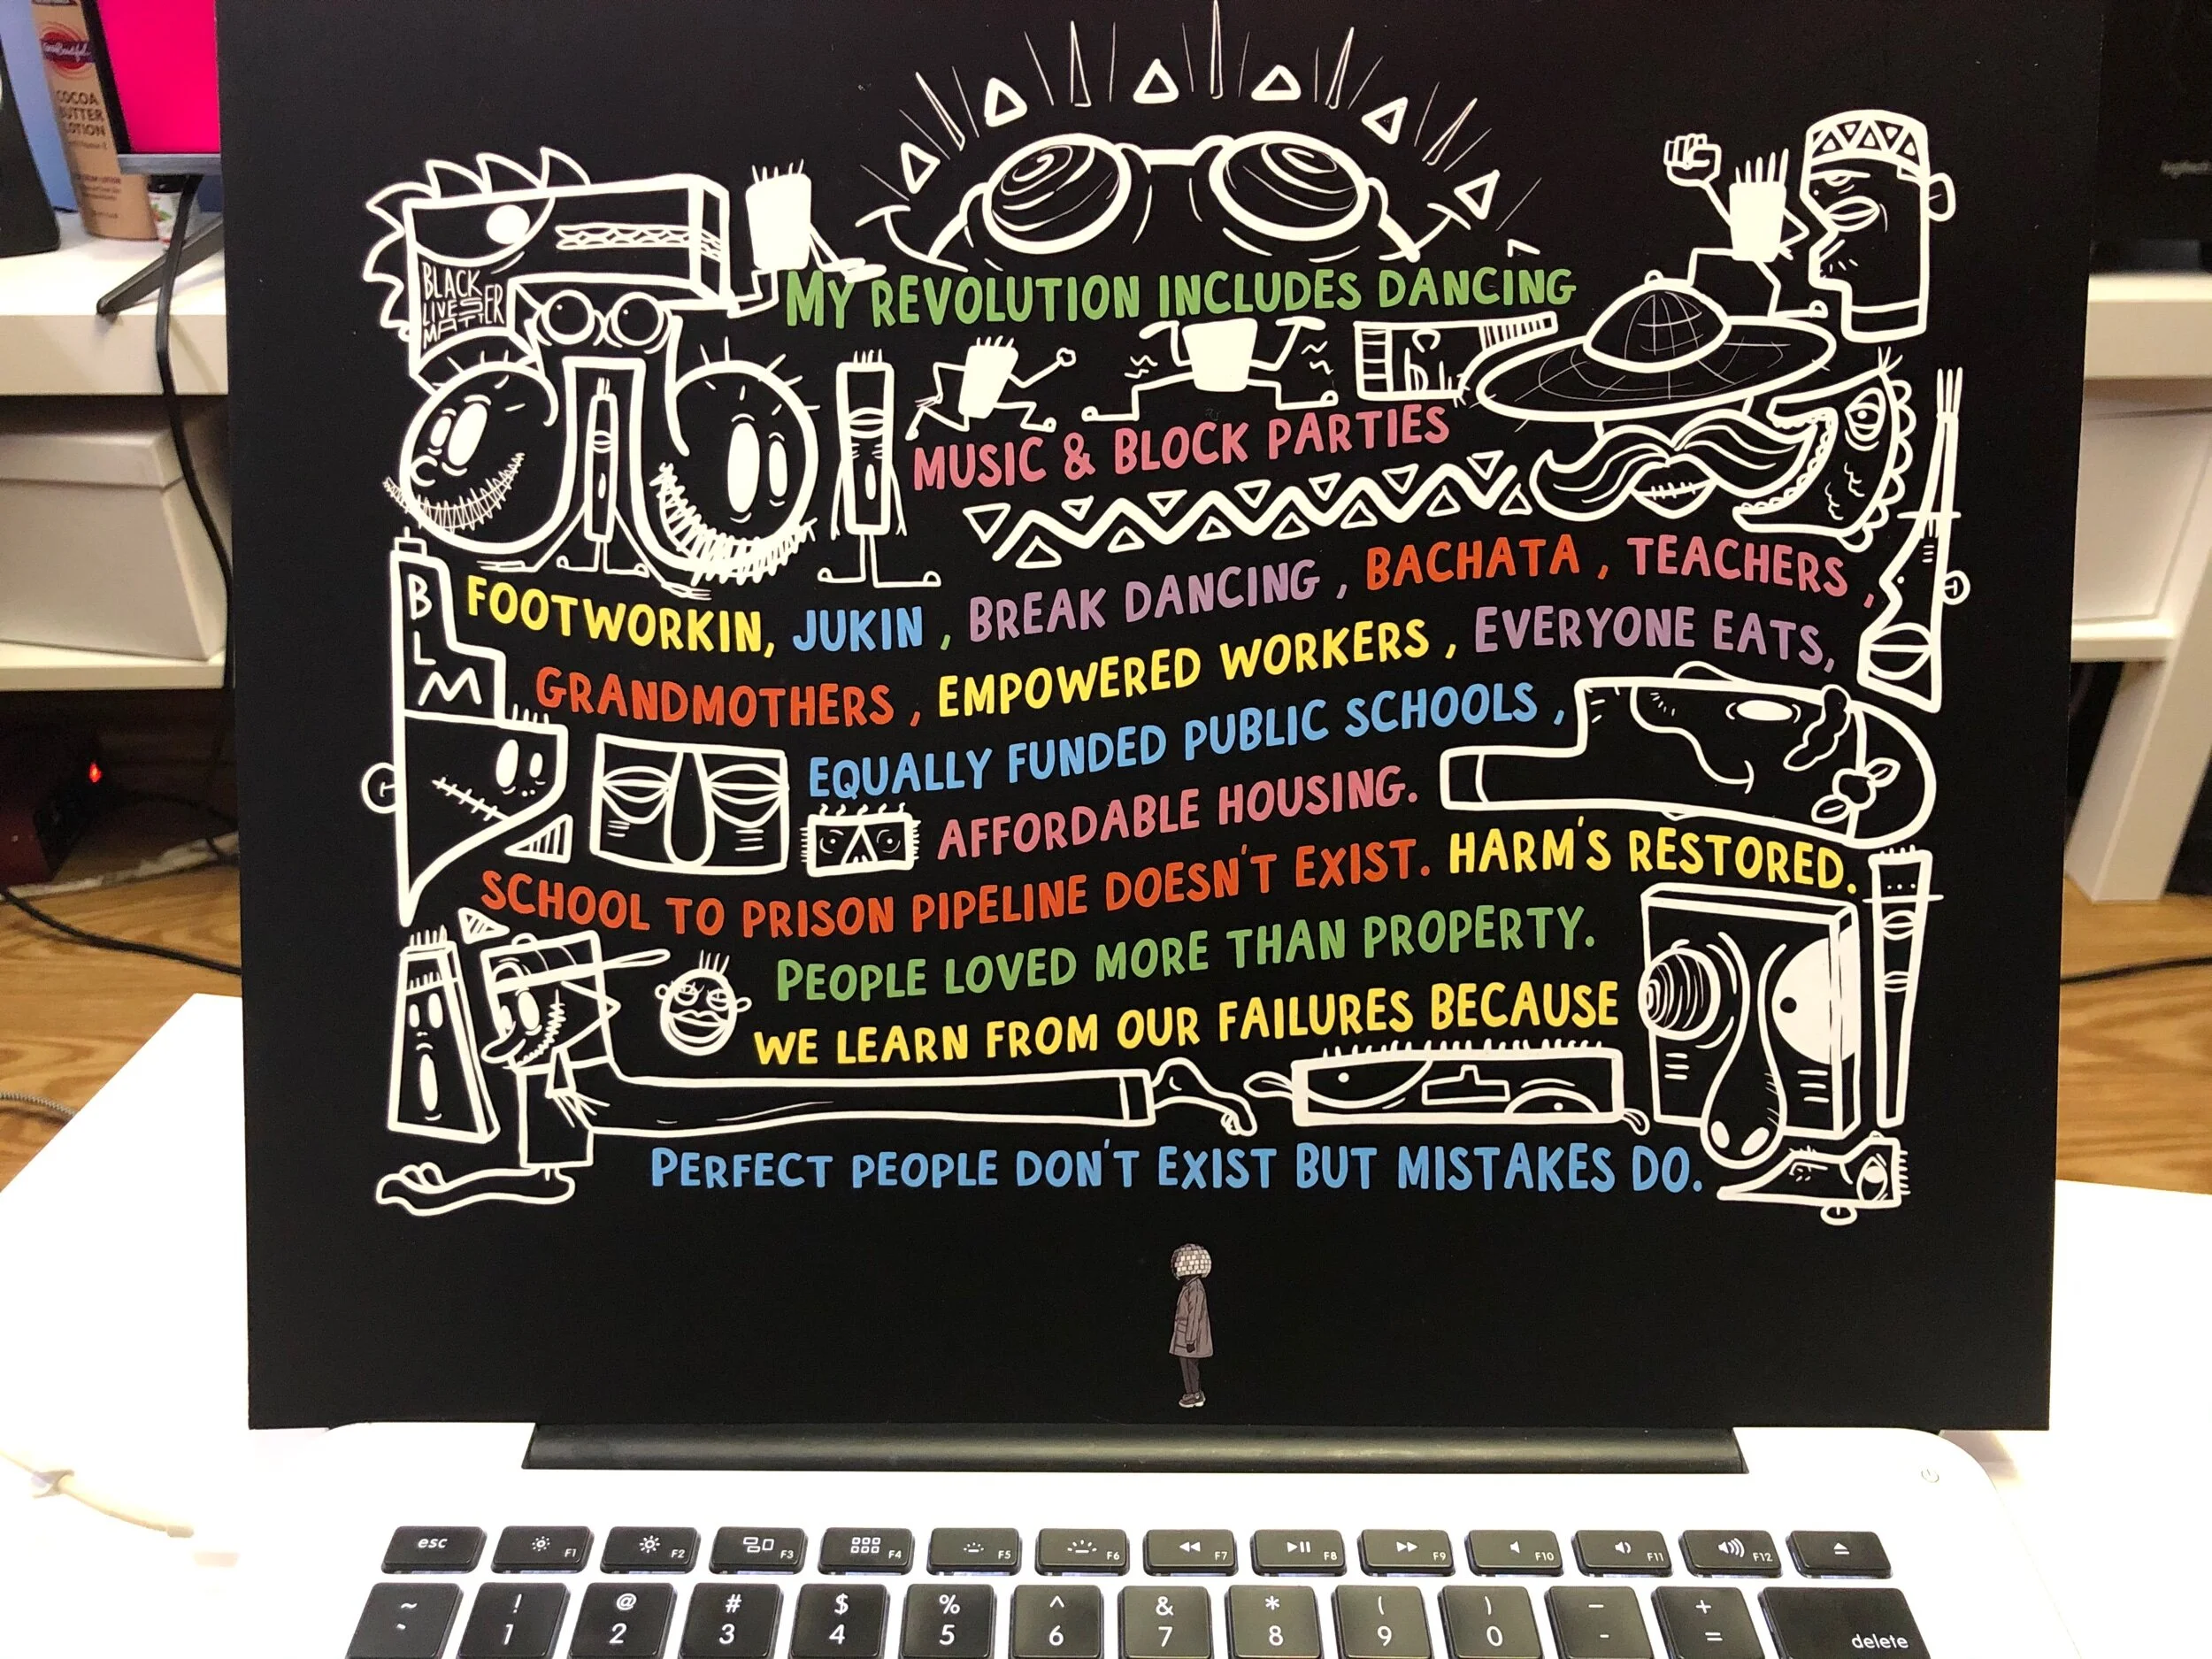 COCOA
BUTTER
LOTION
BLACK
LIVES
MATTER
MY REVOLUTION INCLUDES DANCING
MUSIC & BLOCK PARTIES
BLM
FOOTWORKIN, JUKIN , BREAK DANCING , BACHATA , TEACHERS ,
GRANDMOTHERS , EMPOWERED WORKERS , EVERYONE EATS,
EQUALLY FUNDED PUBLIC SCHOOLS ,
AFFORDABLE HOUSING.
SCHOOL TO PRISON PIPELINE DOESN'T EXIST. HARM'S RESTORED.
PEOPLE LOVED MORE THAN PROPERTY.
WE LEARN FROM OUR FAILURES BECAUSE
PERFECT PEOPLE DON'T EXIST BUT MISTAKES DO.
esc F1 F2 F3 F4 F5 F6 F7 F8 F9 F10 F11 F12
~ ! @ # $ % ^ & * ( ) – +
` 1 2 3 4 5 6 7 8 9 0 - = delete